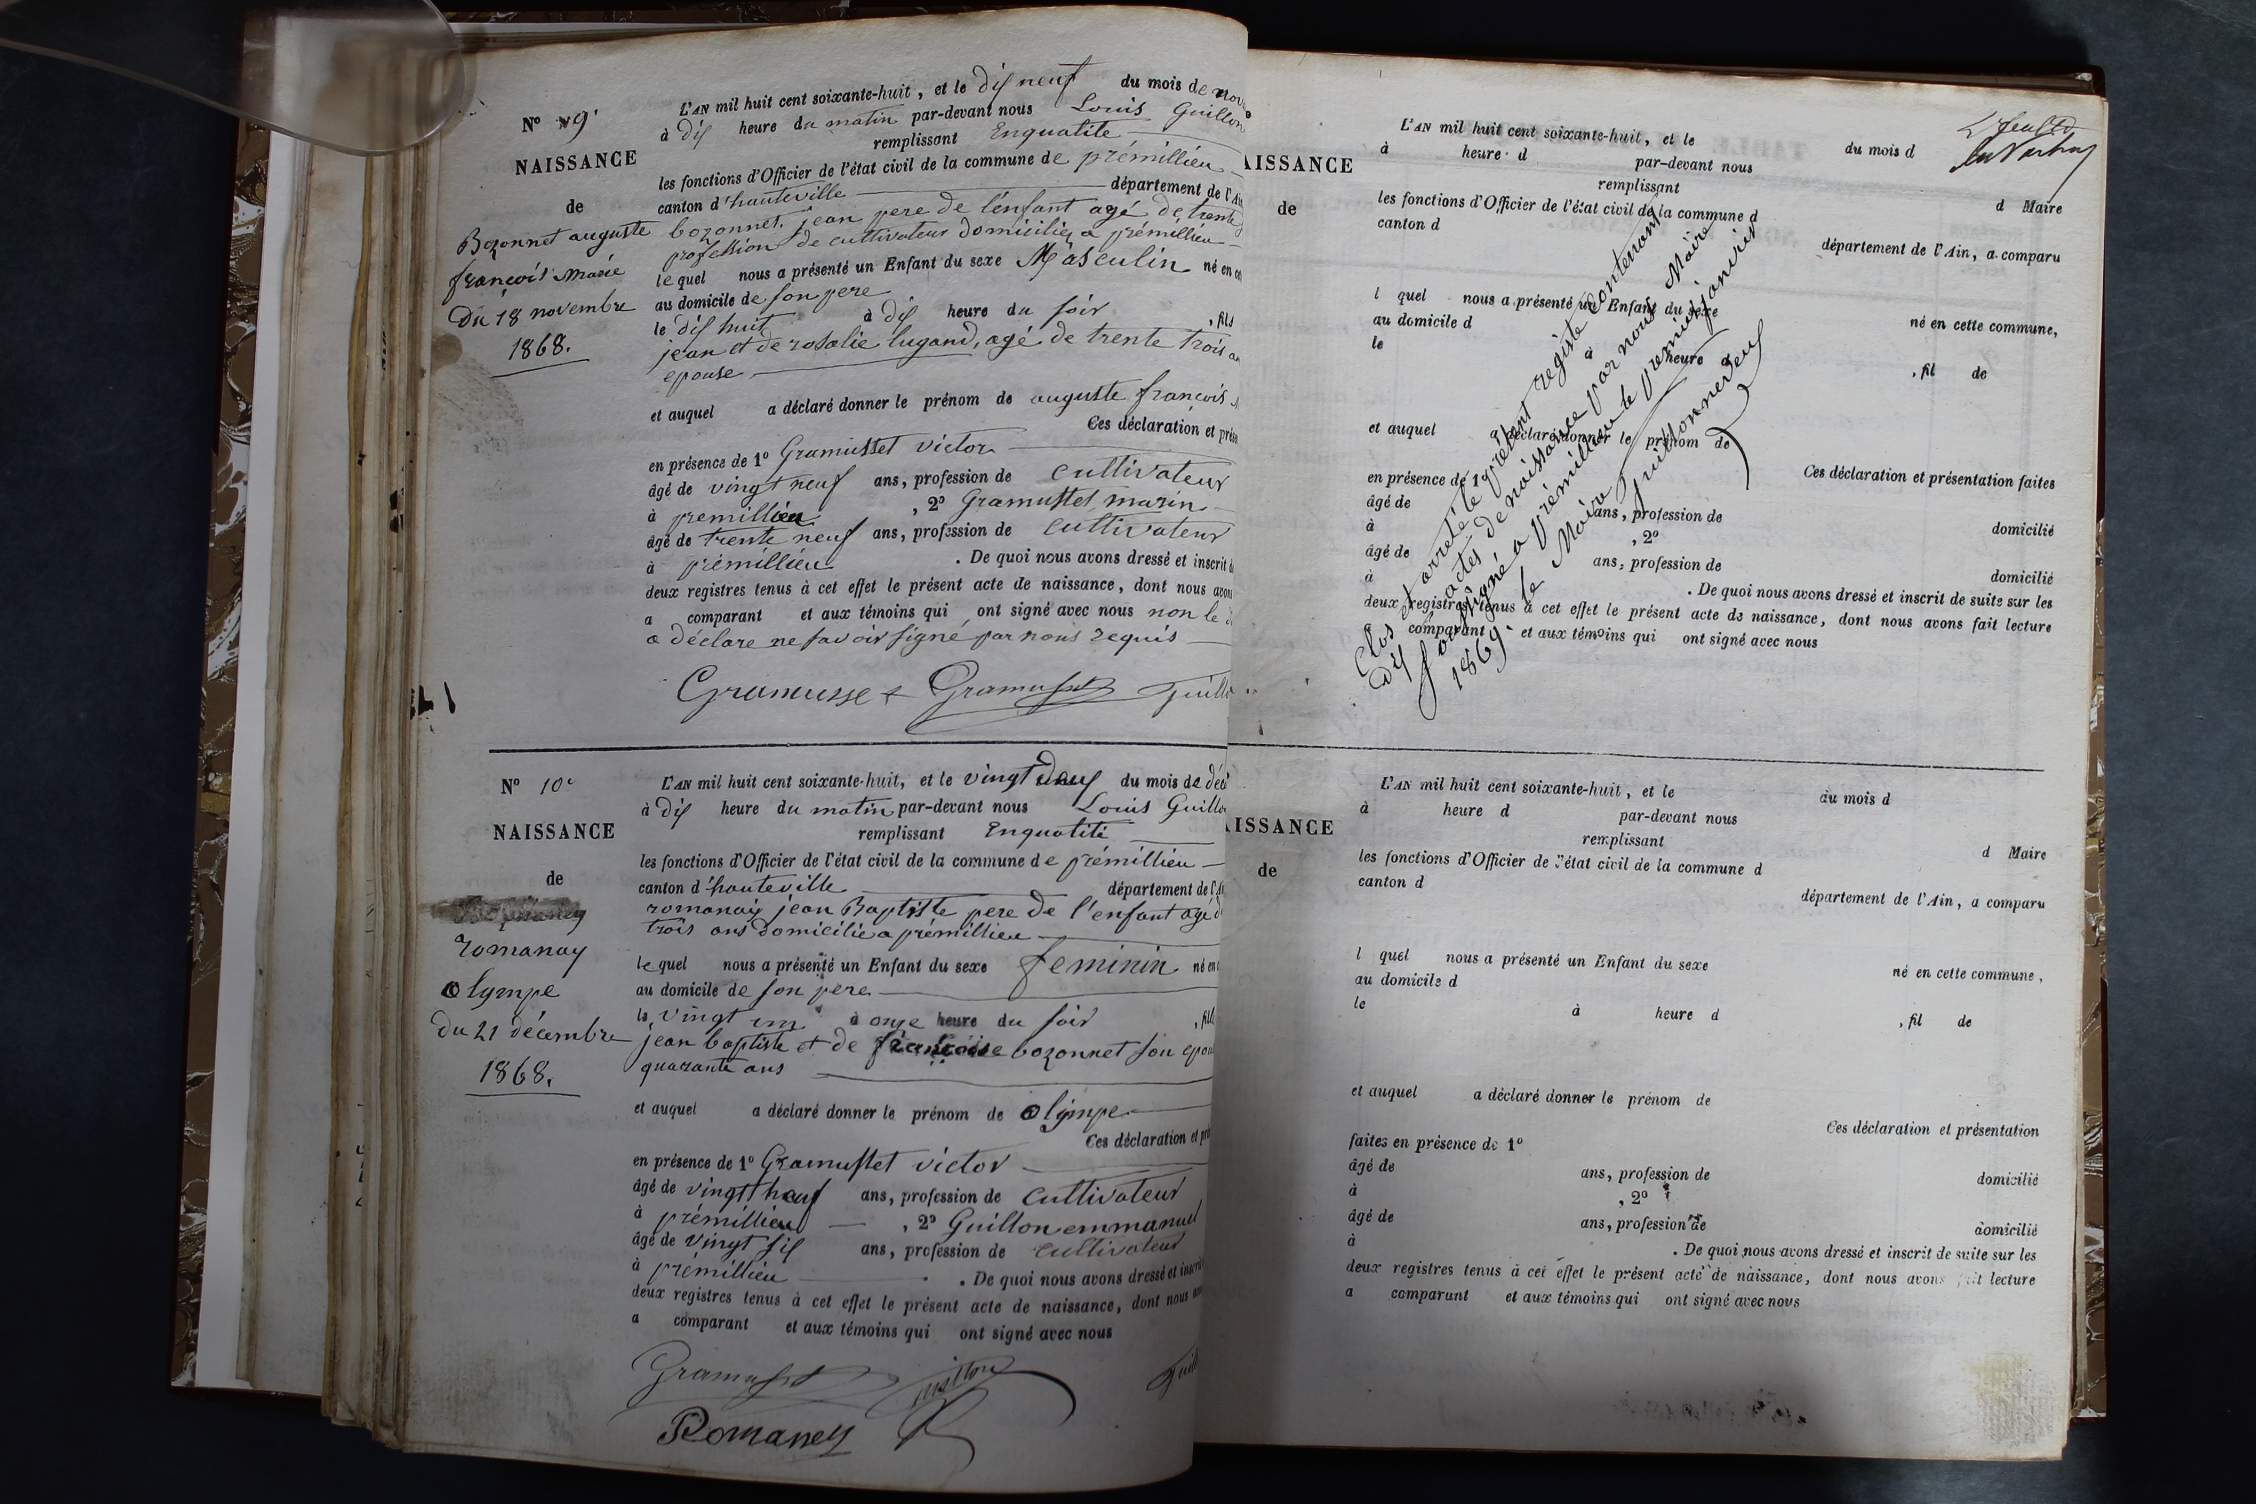 N° 9e
NAISSANCE
de
Bozonnet auguste
françois marie
Du 18 novembre
1868.
L'AN mil huit cent soixante-huit, et le dix neuf du mois de nov
à dix heure du matin par-devant nous Louis Guillon
remplissant Enqualité
les fonctions d'Officier de l'état civil de la commune de prémillieu
canton d'hauteville département de l'Ain
bozonnet jean pere de l'enfant agé de trente
profession de cultivateur domicilié a prémillieu
lequel nous a présenté un Enfant du sexe Masculin né en ce
au domicile de son pere
le dix huit à dix heure du soir , fils
jean et de rosalie lugand, agé de trente trois an
epouse
et auquel a déclaré donner le prénom de auguste francois
Ces déclaration et prése
en présence de 1° Gramusset victor
âgé de vingt neuf ans, profession de cultivateur
à premillieu , 2° Gramusset marin
âgé de trente neuf ans, profession de cultivateur
à prémillieu . De quoi nous avons dressé et inscrit d
deux registres tenus à cet effet le présent acte de naissance, dont nous avons
a comparant et aux témoins qui ont signé avec nous non le
a déclare ne savoir signé par nous requis
Gramusset Gramusset Guillo
N° 10e
NAISSANCE
de
romanay
olympe
du 21 décembre
1868.
L'AN mil huit cent soixante-huit, et le vingt deux du mois de déc
à dix heure du matin par-devant nous Louis Guillo
remplissant Enqualité
les fonctions d'Officier de l'état civil de la commune de prémillieu
canton d'hauteville département de l'Ai
romanay jean Baptiste pere de l'enfant agé d
trois ans domicilié a prémillieu
lequel nous a présenté un Enfant du sexe feminin né en
au domicile de son pere
le vingt un à onze heure du soir , fille
jean baptiste et de francoise bozonnet son epou
quarante ans
et auquel a déclaré donner le prénom de olympe
Ces déclaration et pré
en présence de 1° Gramusset victor
âgé de vingt neuf ans, profession de cultivateur
à prémillieu , 2° Guillon emmanuel
âgé de vingt six ans, profession de cultivateur
à prémillieu . De quoi nous avons dressé et inscrit
deux registres tenus à cet effet le présent acte de naissance, dont nous av
a comparant et aux témoins qui ont signé avec nous
Gramusset Guillon Guill
Romaney
AISSANCE
de
L'AN mil huit cent soixante-huit, et le du mois d
à heure d par-devant nous
remplissant d Maire
les fonctions d'Officier de l'état civil de la commune d
canton d département de l'Ain, a comparu
l quel nous a présenté un Enfant du sexe né en cette commune,
au domicile d
le à heure d , fil de
et auquel a déclaré donner le prénom de
Ces déclaration et présentation faites
en présence de 1°
âgé de ans, profession de domicilié
à , 2°
âgé de ans, profession de domicilié
à . De quoi nous avons dressé et inscrit de suite sur les
deux registres tenus à cet effet le présent acte de naissance, dont nous avons fait lecture
a comparant et aux témoins qui ont signé avec nous
Clos et arreté le présent registe contenant
dix actes de naissance par nous Maire
soussigné a prémillieu le premier janvier
1869. le Maire Guillon
AISSANCE
de
L'AN mil huit cent soixante-huit, et le du mois d
à heure d par-devant nous
remplissant d Maire
les fonctions d'Officier de l'état civil de la commune d
canton d département de l'Ain, a comparu
l quel nous a présenté un Enfant du sexe né en cette commune,
au domicile d
le à heure d , fil de
et auquel a déclaré donner le prénom de
Ces déclaration et présentation
faites en présence de 1°
âgé de ans, profession de domicilié
à , 2°
âgé de ans, profession de domicilié
à . De quoi nous avons dressé et inscrit de suite sur les
deux registres tenus à cet effet le présent acte de naissance, dont nous avons fait lecture
a comparant et aux témoins qui ont signé avec nous